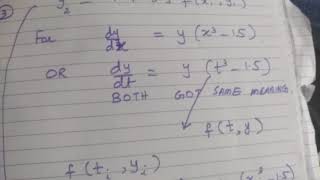 ③
For dy/dx = y (x³ - 1.5)
OR dy/dt = y (t³ - 1.5)
BOTH GOT SAME MEANING.
f(t, y)
f(tᵢ, yᵢ)